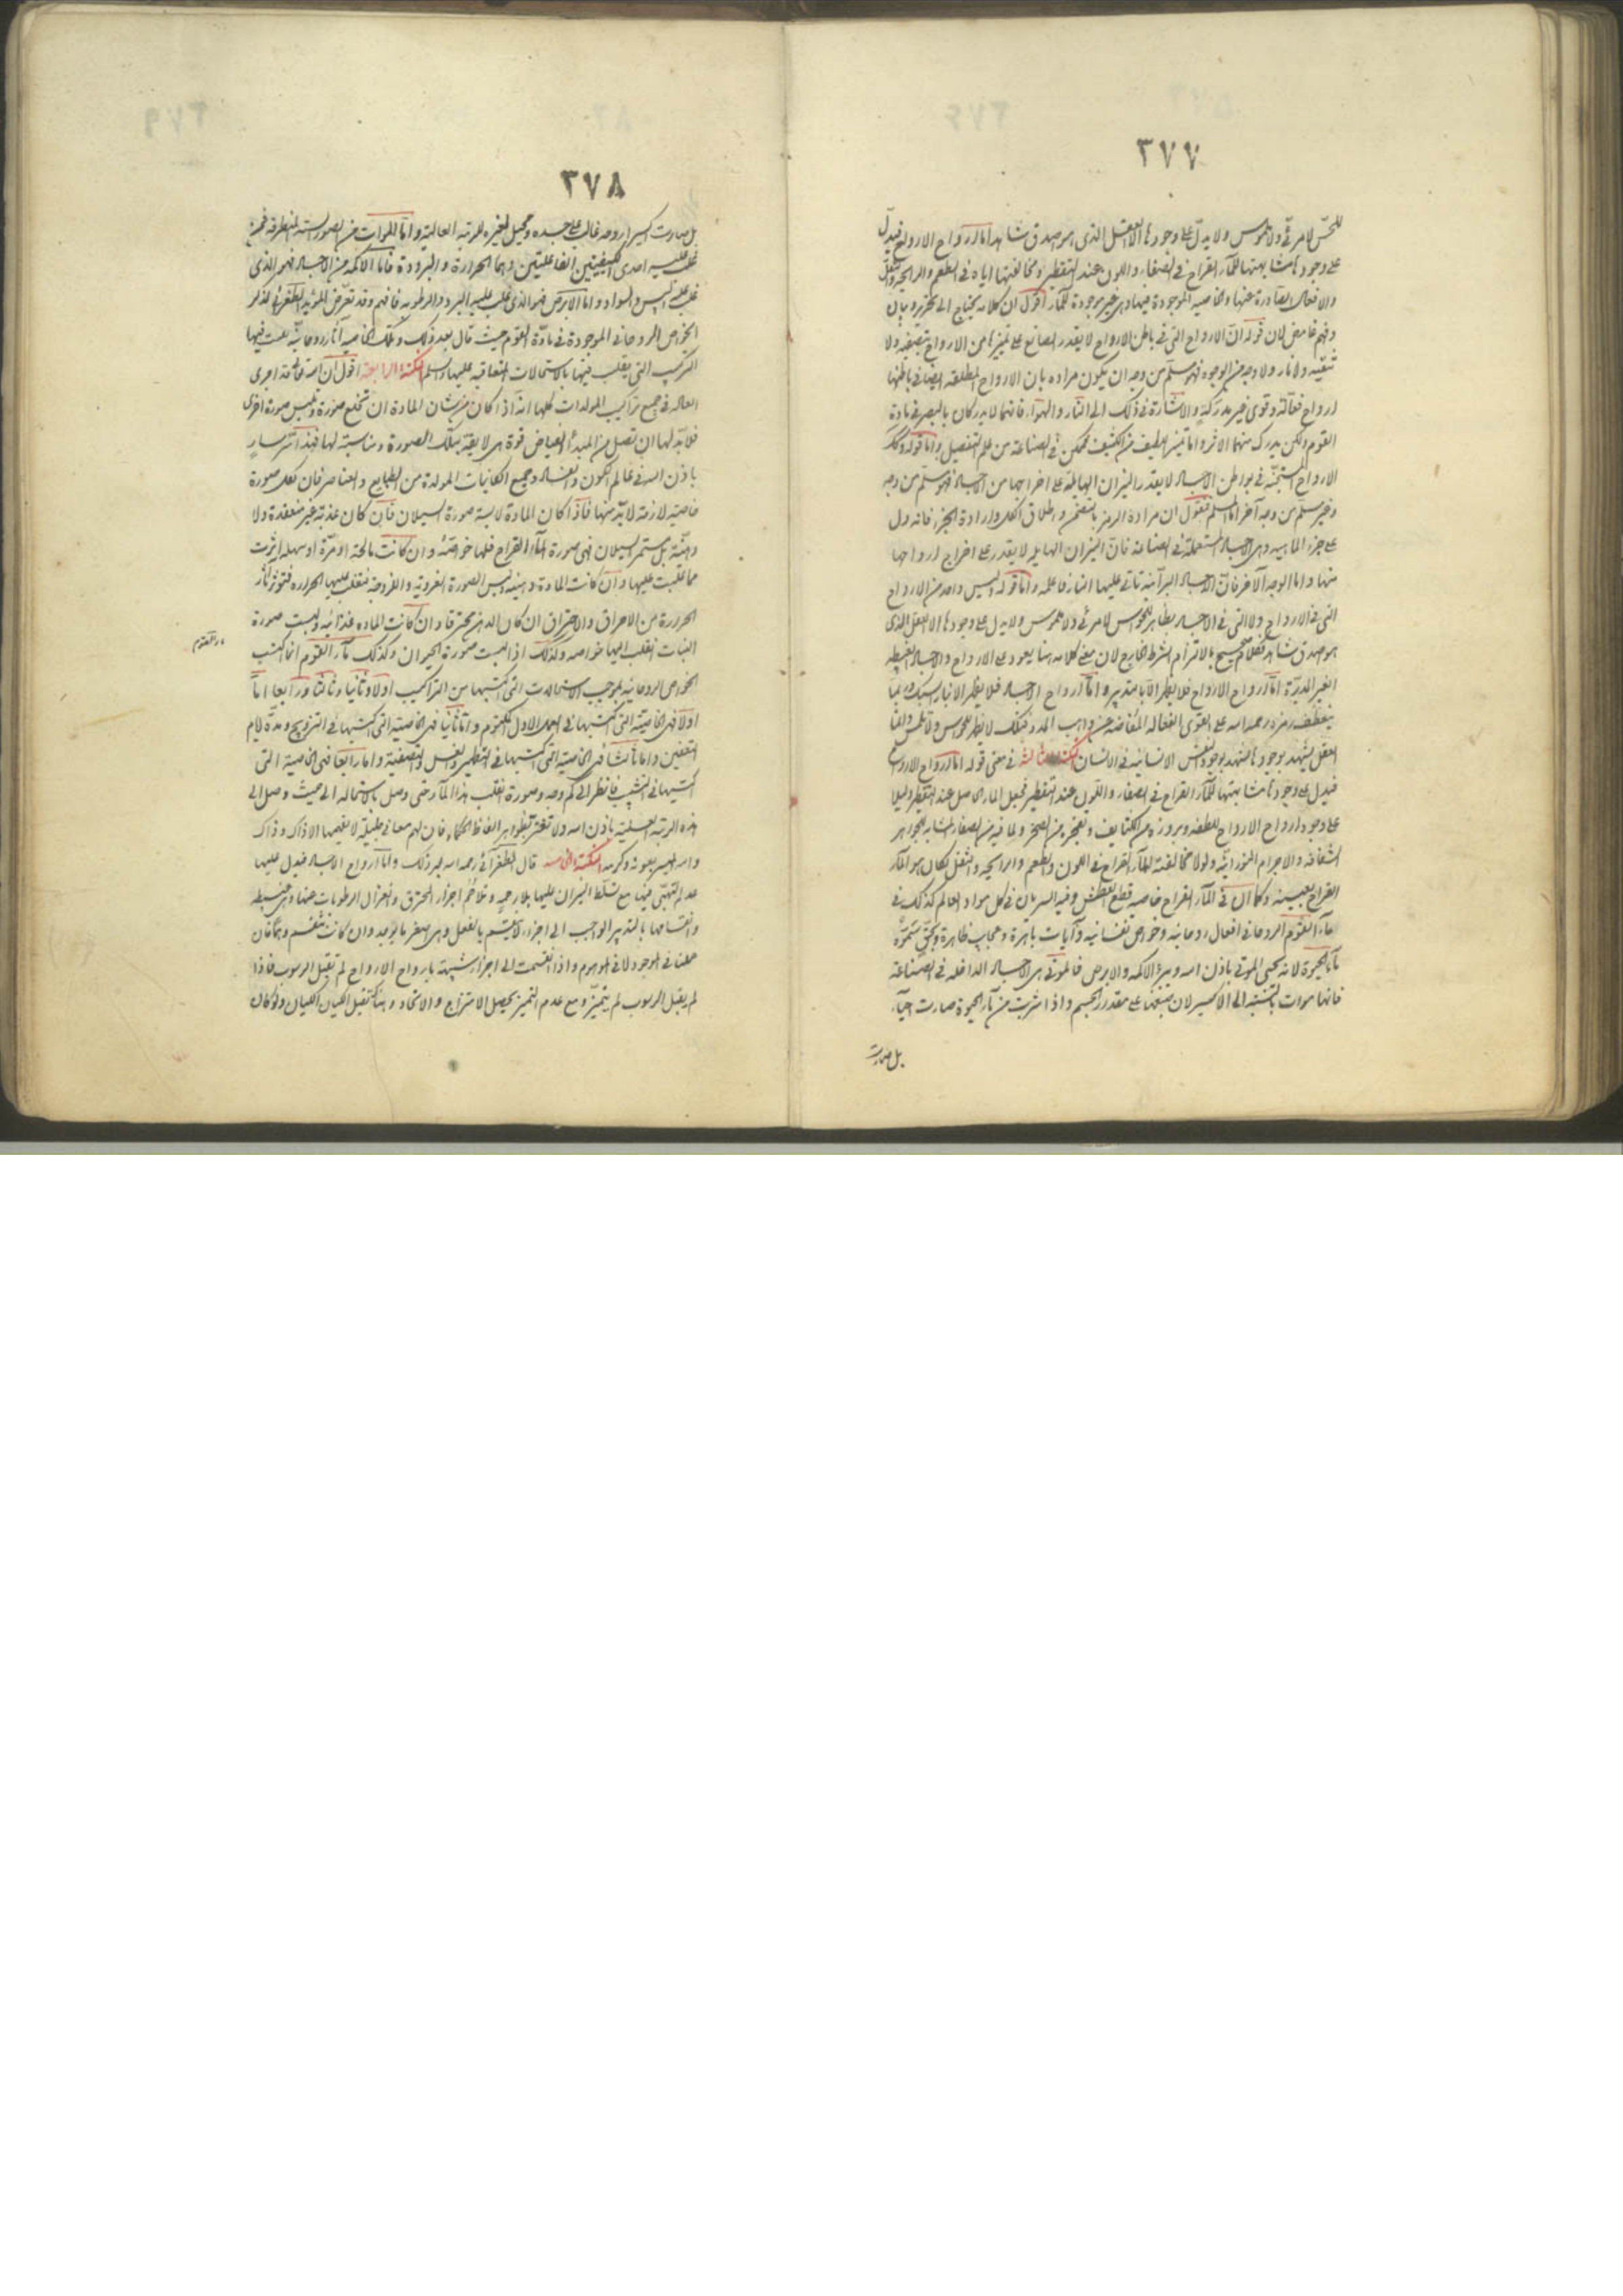 ٣٧٧
للحس لا مرئي ولا ملموس ولا يدل على وجودها الا العقل الذي هو اصدق شاهد اما ارواح الارواح فيدل
على وجودها مشابهتها للماء القراح في الصفاء واللون عند التقطير ومخالفتها اياه في الطعم والرائحة والثقل
والافعال الصادرة عنها والخاصية الموجودة فيها وهي غير موجودة للماء اقول ان كلامه يحتاج الى تحرير وبيان
وفهم غامض لان قوله ان الارواح التي في باطن الارواح لا يقدر الصانع على تمييزها من الارواح بتصفية ولا
تنقية ولا نار ولا وجه من الوجوه فهو مسلم من وجه ان يكون مراده بان الارواح المطلقة ايضا في باطنها
ارواح فعالة وقوى غير مدركة والاشارة في ذلك الى النار والهواء فانهما لا يدركان بالبصر في مادة
القوم ولكن يدرك منهما الاثر واما تمييز اللطيف من الكثيف فممكن في الصناعة من علم التفصيل واما قوله وكذلك
الارواح المستجنة في بواطن الاجساد لا يقدر النيران الهائلة على اخراجها من الاجساد فهو مسلم من وجه
وغير مسلم من وجه آخر اما المسلم فنقول ان مراده الرمز بالتفخيم واطلاق الكل وارادة الجزء فانه دل
على جزء الماهية وهي الاجساد المستعملة في الصناعة فان النيران الهائلة لا يقدر على اخراج ارواحها
منها واما الوجه الآخر فان الاجساد البرانية تأتي عليها النار فاعلمه واما قوله وليس واحد من الارواح
التي في الارواح ولا التي في الاجساد بظاهر للحواس لا مرئي ولا ملموس ولا يدل على وجودها الا العقل الذي
هو اصدق شاهد فكلام صحيح بالالتزام بشرط الخارج لان معنى كلامه هنا يعود على الارواح والاجساد الغبيطة
الغير المدبرة اما ارواح الارواح فلا يظهر الا بالتدبير واما ارواح الاجساد فلا يظهر الا بالسبك وربما
ينعطف رمزه رحمه الله على القوى الفعالة المفاضة من واهب الصور فتلك لا يظهر للحواس ولا تلمس وانما
العقل يشهد بوجودها كشهوده بوجود النفس الانسانية في الانسان النكتة الثالثة في معنى قوله اما ارواح الارواح
فيدل على وجودها مشابهتها للماء القراح في الصفاء واللون عند التقطير فجعل الماء الحاصل عند التقطير دليلا
على وجود ارواح الارواح للطفه وبروزه من الكثايف وتفجره من الصخر ولما فيه من الصفاء مشابه للجواهر
الشفافة والاجرام النورانية ولولا مخالفته للماء القراح في اللون والطعم والرايحة والثقل لكان هو الماء
القراح بعينه وكما ان في الماء القراح خاصية قطع العطش وفيه السريان في كل مواد العالم كذلك في
ماء القوم الروحاني افعال روحانية وخواص نفسانية وآيات باهرة وعجايب ظاهرة وبحق سموه
بماء الحيوة لانه يحيي الموتى باذن الله ويبرئ الاكمه والابرص فالموتى هي الاجساد الداخلة في الصناعة
فانها موات بالنسبة الى الاكسير لان منفعتها على مقدار الجسم واذا شربت من ماء الحيوة صارت احياء
بل صارت
٣٧٨
بل صارت اكسيرا روحه غالب على جسده ومحيل لغيره للمرتبة العالية واما الموات من الصور الستة المنطرقة فمن
غلب عليه احدى الكيفيتين الفاعليتين وهما الحرارة والبرودة فاما الاكمه من الاجساد فهو الذي
غلب عليه اليبس والسواد واما الابرص فهو الذي غلب عليه البرد والرطوبة فافهم وقد تعرض المؤيد الطغرائي لذكر
الخواص الروحاني الموجودة في مادة القوم حيث قال بعد ذلك وتلك الخاصية آثار روحانية بعث فيها
التركيب التي يقلب فيها بالاستحالات المتعاقبة عليها والسلم النكتة الرابعة اقول ان الله تعالى قد اجرى
العادة في جميع تراكيب المولدات كلها انه اذا كان من شان المادة ان تخلع صورة وتلبس صورة اخرى
فلا بد لها ان تصل من المبدأ الفياض قوة هي لايقة بتلك الصورة ومناسبة لها فهذا سر سار
باذن الله في عالم الكون والفساد وجميع الكاينات المولدة من الطبايع والعناصر فان لكل صورة
خاصية لازمة لا بد منها فاذا كان المادة لابسة صورة السيلان فان كان عذبة غير منعقدة ولا
دهنية بل مستمر السيلان فهي صورة الماء القراح فلها خواصه وان كانت مالحة او مرة او سهلة اثرت
مما غلبت عليها وان كانت المادة دهنية ولبس الصورة الغروية واللزوجة فتغلب عليها الحرارة فتؤثر آثار
الحرارة من الاحراق والاحتراق ان كان الدهن محترقا وان كانت المادة غذائية ولبست صورة
النبات انقلب اليها خواصه ولذلك اذا لبست صورة الحيوان وكذلك ماء القوم انما اكتسب
ماء القوم
الخواص الروحانية بموجب الاستحالات التي اكتسبها من التراكيب اولا وثانيا وثالثا ورابعا اما
اولا فهي الخاصية التي اكتسبها في العمل الاول المكتوم واما ثانيا فهي الخاصية التي اكتسبها في التزويج ومدة ايام
التعفين واما ثالثا فهي الخاصية التي اكتسبها في التطهير والغسل والتصفية واما رابعا فهي الخاصية التي
اكتسبها في التشبيب فانظر الى كم وجه وصورة انقلب هذا الماء حتى وصل بالاستحالة الى حيث وصل الى
هذه الرتبة العلية باذن الله ولا تغتر بظواهر الفاظ الحكماء فان لهم معاني جليلة لا يفهمها الا ذاك وذاك
والله الميسر بعونه وكرمه النكتة الخامسة قال الطغرائي رحمه الله بعد ذلك واما ارواح الاجساد فيدل عليها
عدم التهبي فيها مع تسلط النيران عليها بلا رحمة وتلاحم اجزاء المحترق وانعزال الرطوبات عنها وهي منبسطة
وانقسامها بالتدبير الواجب الى اجزاء لا ينقسم بالفعل وهي اصغر ما يوجد وان كانت تنقسم وهما فان
عملنا في الموجود لا في الموهوم واذا انقسمت الى اجزاء شبيهة بارواح الارواح لم تقبل الرسوب فاذا
لم يقبل الرسوب لم يتميز ومع عدم التمييز يحصل الامتزاج والاتحاد وهناك تقبل الكيان الكيان ولو كان